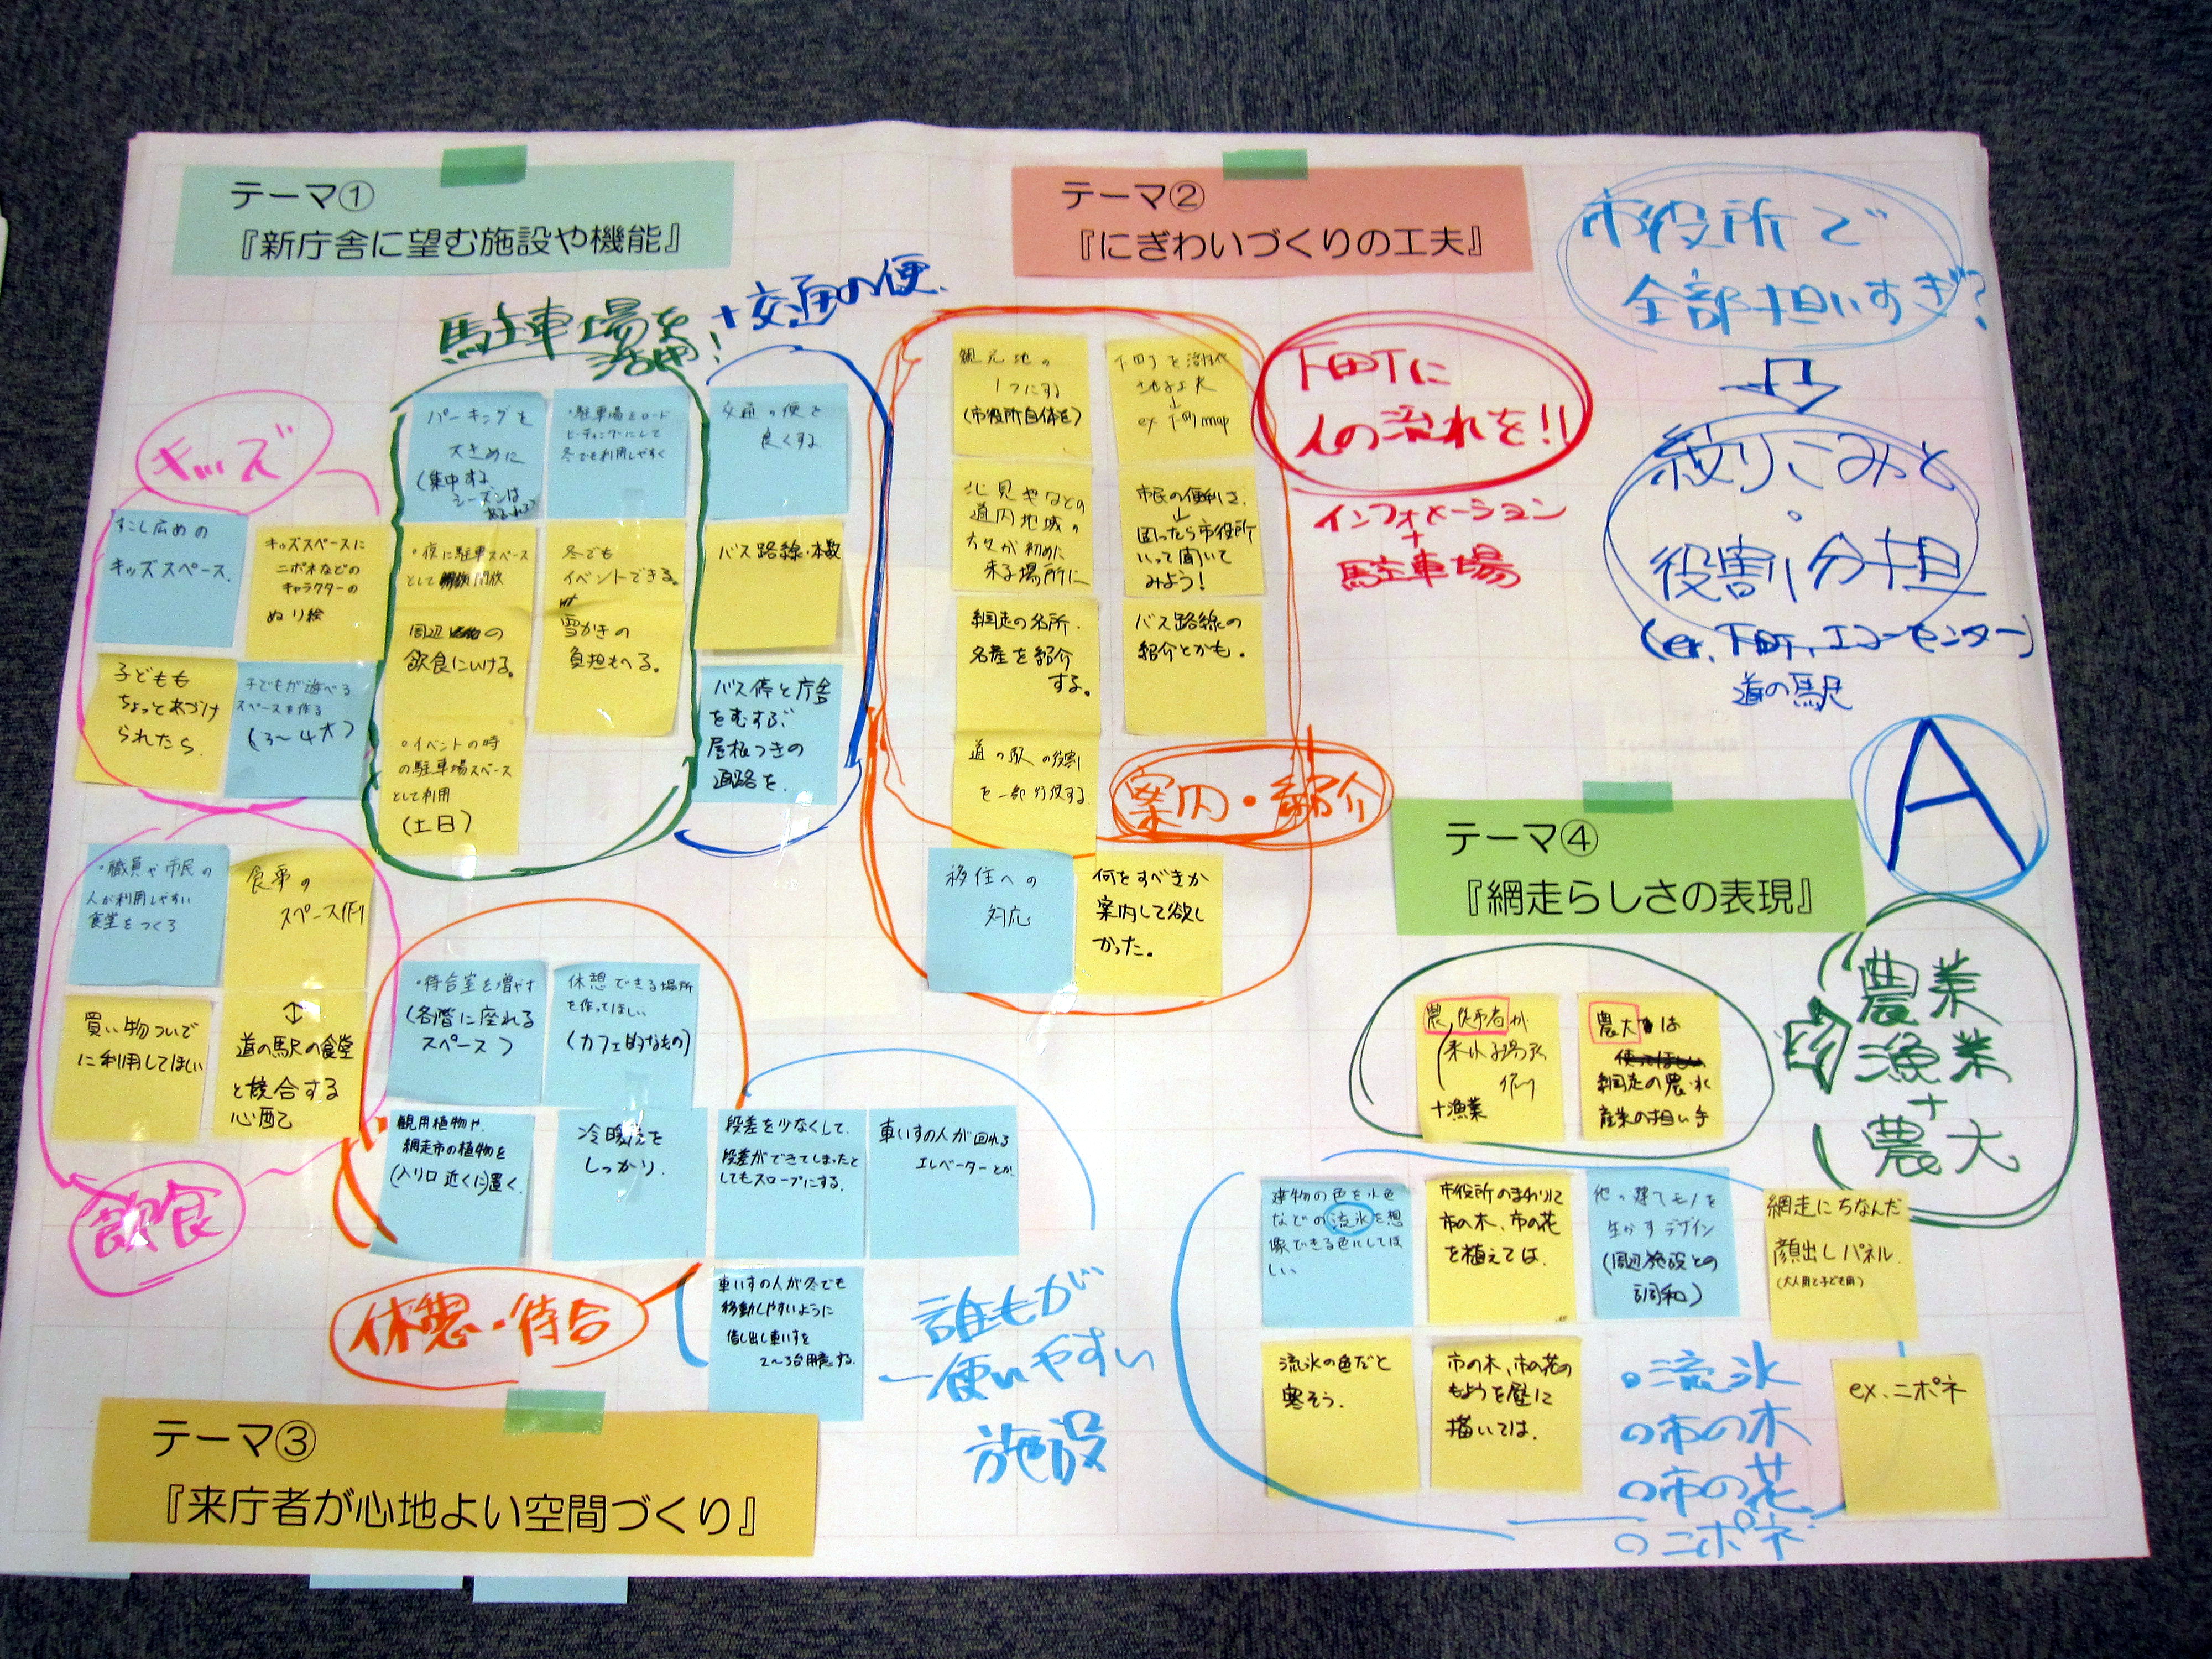 テーマ①
『新庁舎に望む施設や機能』
駐車場を
活用!
+交通の便
キッズ
すこし広めの
キッズスペース.
キッズスペースに
ニポネなどの
キャラクターの
ぬり絵
子どもも
ちょっとあづけ
られたら.
子どもが遊べる
スペースを作る
(3〜4才)
パーキングを
大きめに
(集中する
シーズンは
・駐車場をロード
ヒーティングにして
冬でも利用しやすく
・夜に駐車スペース
として開放
周辺の
飲食にいける。
冬でも
イベントできる。
雪かきの
負担もへる。
・イベントの時
の駐車場スペース
として利用
(土日)
交通の便を
良くする
バス路線・本数
バス停と庁舎
をむすぶ
屋根つきの
通路を.
・職員や市民の
人が利用しやすい
食堂をつくる
食事の
スペース作り
買い物ついで
に利用してほしい
↕
道の駅の食堂
と競合する
心配
飲食
テーマ②
『にぎわいづくりの工夫』
観光地の
1つにする
(市役所自体を)
下町を活性化
させる工夫
↓
ex 下町map
北見やなどの
道内地域の
方々が初めに
来る場所に
市民の便利さ.
↓
困ったら市役所
いって聞いて
みよう!
網走の名所.
名産を紹介
する。
バス路線の
紹介とかも.
道の駅の役割
を一部分役する.
案内・紹介
移住への
対応
何をすべきか
案内して欲し
かった。
下町に
人の流れを!!
インフォメーション
+
駐車場
市役所で
全部担いすぎ?
絞りこみと
役割分担
(ex.下町,エコーセンター)
道の駅
A
・待合室を増やす
(各階に座れる
スペース)
休憩できる場所
を作ってほしい
(カフェ的なもの)
観用植物や.
網走市の植物を
(入り口近くに)置く.
冷暖房を
しっかり.
段差を少なくして.
段差ができてしまったと
してもスロープにする.
車いすの人が回れる
エレベーターとか.
車いすの人が冬でも
移動しやすいように
借し出し車いすを
2〜3台用意する.
休憩・待合
誰もが
使いやすい
施設
テーマ③
『来庁者が心地よい空間づくり』
テーマ④
『網走らしさの表現』
農,従事者が
来れる場所
作り
+漁業
農大は
使ってほしい
網走の農・水
産業の担い手
農業
漁業
+
農大
建物の色を水色
などの流氷を想
像できる色にしてほ
しい
市役所のまわりに
市の木、市の花
を植えては.
他の建てモノを
生かすデザイン
(周辺施設との
調和)
網走にちなんだ
顔出しパネル.
(大人用と子ども用)
流氷の色だと
寒そう.
市の木、市の花の
もようを壁に
描いては.
ex.ニポネ
○流氷
○市の木
○市の花
○ニポネ